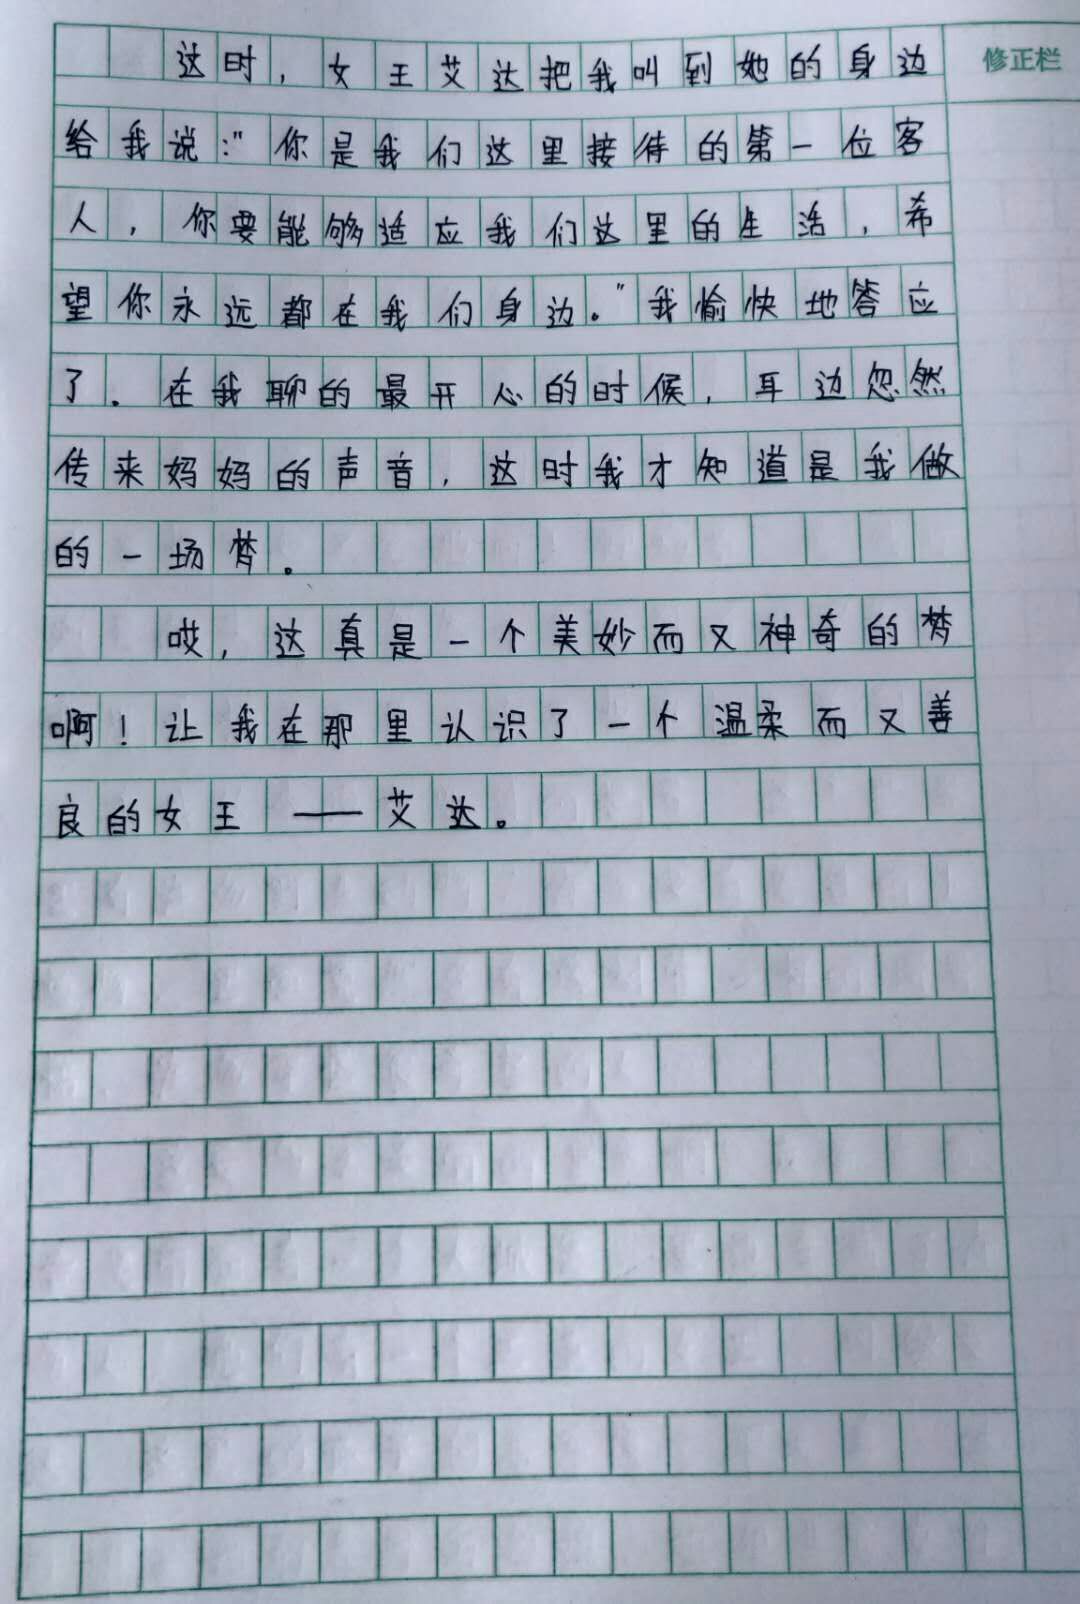 这时，女王艾达把我叫到她的身边
修正栏
给我说："你是我们这里接待的第一位客
人，你要能够适应我们这里的生活，希
望你永远都在我们身边。"我愉快地答应
了．在我聊的最开心的时候，耳边忽然
传来妈妈的声音，这时我才知道是我做
的一场梦。
哎，这真是一个美妙而又神奇的梦
啊！让我在那里认识了一个温柔而又善
良的女王——艾达。